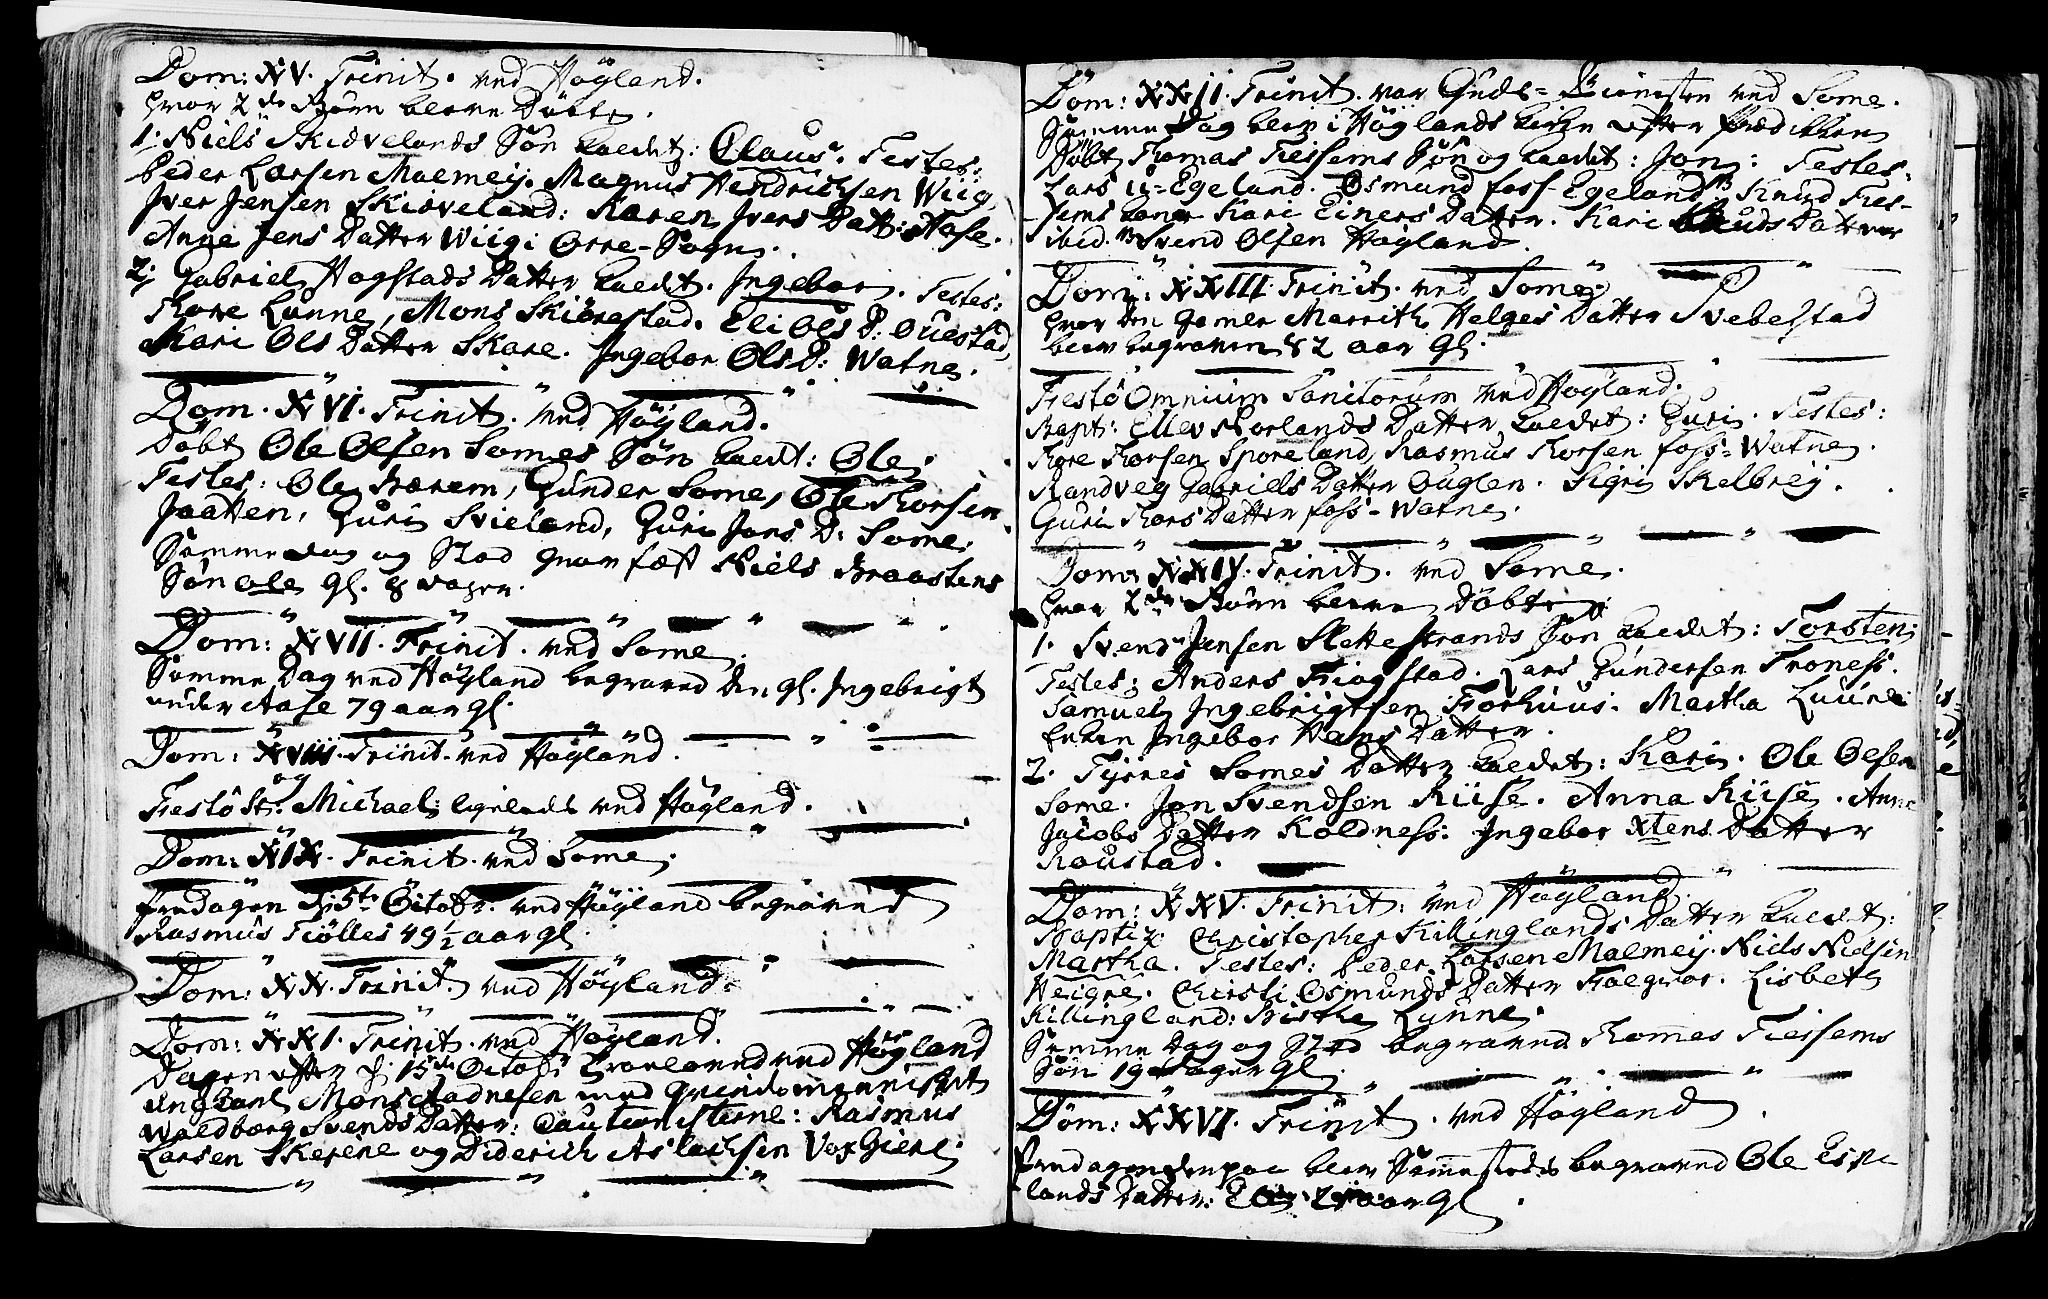 Dom: XV. Trinit. ved Höyland.
hvor 2de Börn bleve Döbte.
1. Niels Skievelands Sön kaldet: Claus. Testes:
Peder Larsen Malmeij. Magnus Hendrichsen Wiig
Iver Jensen Skieveland: Karen Ivers Datt: Aase.
Ange Jens Datter Wiig i Orre-Sogn.
2. Gabriel Hogstads Datter kaldet. Ingebor. Testes:
Tore Lunne, Mons Skiörestad. Eli Ols D: Ouestad,
Kari Ols Datter Skare. Ingebor Ols D: Watne.
Dom. XVI. Trinit. ved Höyland.
Döbt Ole Olsen Somes Sön kaldt: Ole.
Testes: Ole Bærem, Gunder Some, Ole Thorsen
Jaatten, Guri Svieland, Guri Jons D: Some.
Samme dag og Stad Niels Braastens
Sön Ole gl. 8 dager.
Dom: XVII. Trinit. ved Some.
Samme Dag ved Höyland begraved den gl. Ingebrigt
under Aase 79 aar gl.
Dom: XVIII. Trinit. ved Höyland.
og
Festo St: Michael: ligeledes ved Höyland.
Dom: XIX. Trinit. ved Some.
Fredagen d: 5te Octobr. ved Höyland begraved
Rasmus Tiölles 49 1/2 aar gl.
Dom: XX. Trinit. ved Höyland.
Dom: XXI. Trinit. ved Höyland.
Dagen efter d: 15de Octobr Trolovved ved Höyland
ung Karl Mons Ladnesen med Qvindemennisket
Woldborg Svends Datter: Cautionisterne: Rasmus
Larsen Skeiene og Diderich Aslachsen Vox Giere.
Dom: XXII. Trinit. var Guds-Tienesten ved Some.
Samme Dag blev i Höylands Kirke efter Prædikken
Döbt Thomas Tiessems Sön og kaldet: Jon: Testes.
Lars u-Egeland. Osmund foss-Egeland, Knud Ties-
sems kone Kari Einers Datter. Kari Knuds Datter
ibid. Svend Olsen Höyland.
Dom: XXIII. Trinit. ved Some.
hvor den gamle Marrith Helges Datter Svebestad
blev begraven 82 aar gl.
Festo Omnium Sanctorum ved Höyland.
Bapt: Ellev Norlands Datter kaldet: Guri. Testes:
Tore Thorsen Sporeland, Rasmus Thorsen foss-Watne.
Randveg Gabriels Datter Ouglen. Sigri Skelbreij.
Guri Thors Datter foss-Watne.
Dom: XXIV. Trinit. ved Some.
hvor 2de Börn bleve Döbte.
1. Svend Jensen Slettestrands Sön kaldet: Torsten:
Testes: Anders Friogstad. Lars Gundersen Troness.
Samuel Ingebrigtsen Forhuus. Martha Luune
Enken Ingebor Hans Datter.
2. Tjöres Somes Datter kaldet: Kari. Ole Olsen
Some. Jon Svendsen Riise. Anna Riise. Anne
Jacobs Datter Koldness: Ingebor Xtens Datter
Roustad.
Dom: XXV. Trinit: ved Höyland.
Baptiz: Christopher Killinglands Datter kaldet:
Martha. Testes: Peder Larsen Malmeij. Niels Nielsen
Heigre. Christi Osmunds Datter Folgvor. Lisbet
Killingland: Birthe Lunne.
Samme Dag og Sted begraved Thomes Tiessems
Sön 19 Dager gl.
Dom: XXVI. Trinit. ved Höyland.
Fredagen derpaa blev Sammestedes begraved Ole Espe
lands Datter: aar gl.